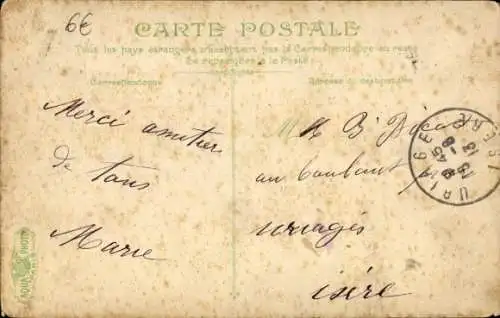 6€
CARTE POSTALE
Tous les pays étrangers n'acceptent pas la Correspondance au recto
Se renseigner à la Poste
Correspondance
Adresse du destinataire
Merci amitier
de tous
Marie
M B
au
uriages
isère
URIAGE
ISÈRE